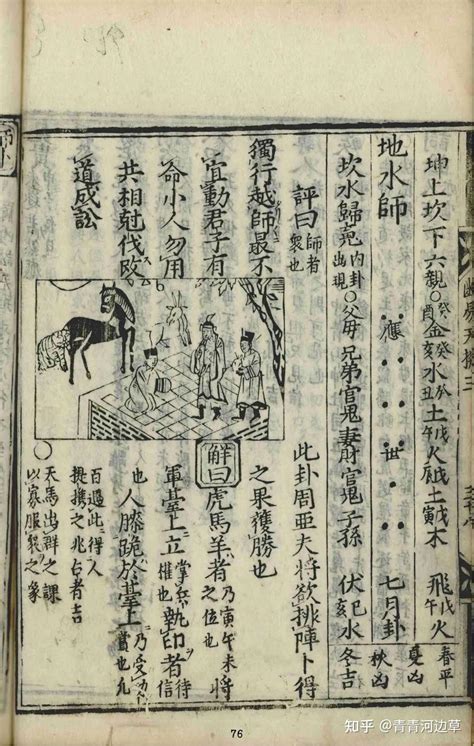 坤上坎下六親 癸酉金 癸亥水 癸丑土 戊午火 戊辰土 戊寅木 飛戊午火 春平 夏凶
地水師 應 世 七月卦 秋凶
坎水歸䰟 內卦出現 ○父母 兄弟 官鬼 妻財 官鬼 子孫 伏己亥水 冬吉
評曰 師者衆也
獨行越師最不
宜動君子有
命小人勿用
共相尅伐攺
道成訟
此卦周亞夫將欲排陣卜得
之果獲勝也
解曰虎馬羊者乃寅午未之位也將
軍臺上立掌兵權也執印者信待
也人膝跪於臺上乃受功賞也凡
百遇此得人
提携之兆占者吉
○天馬出群之課
以寡服衆之象
76
知乎 @青青河边草